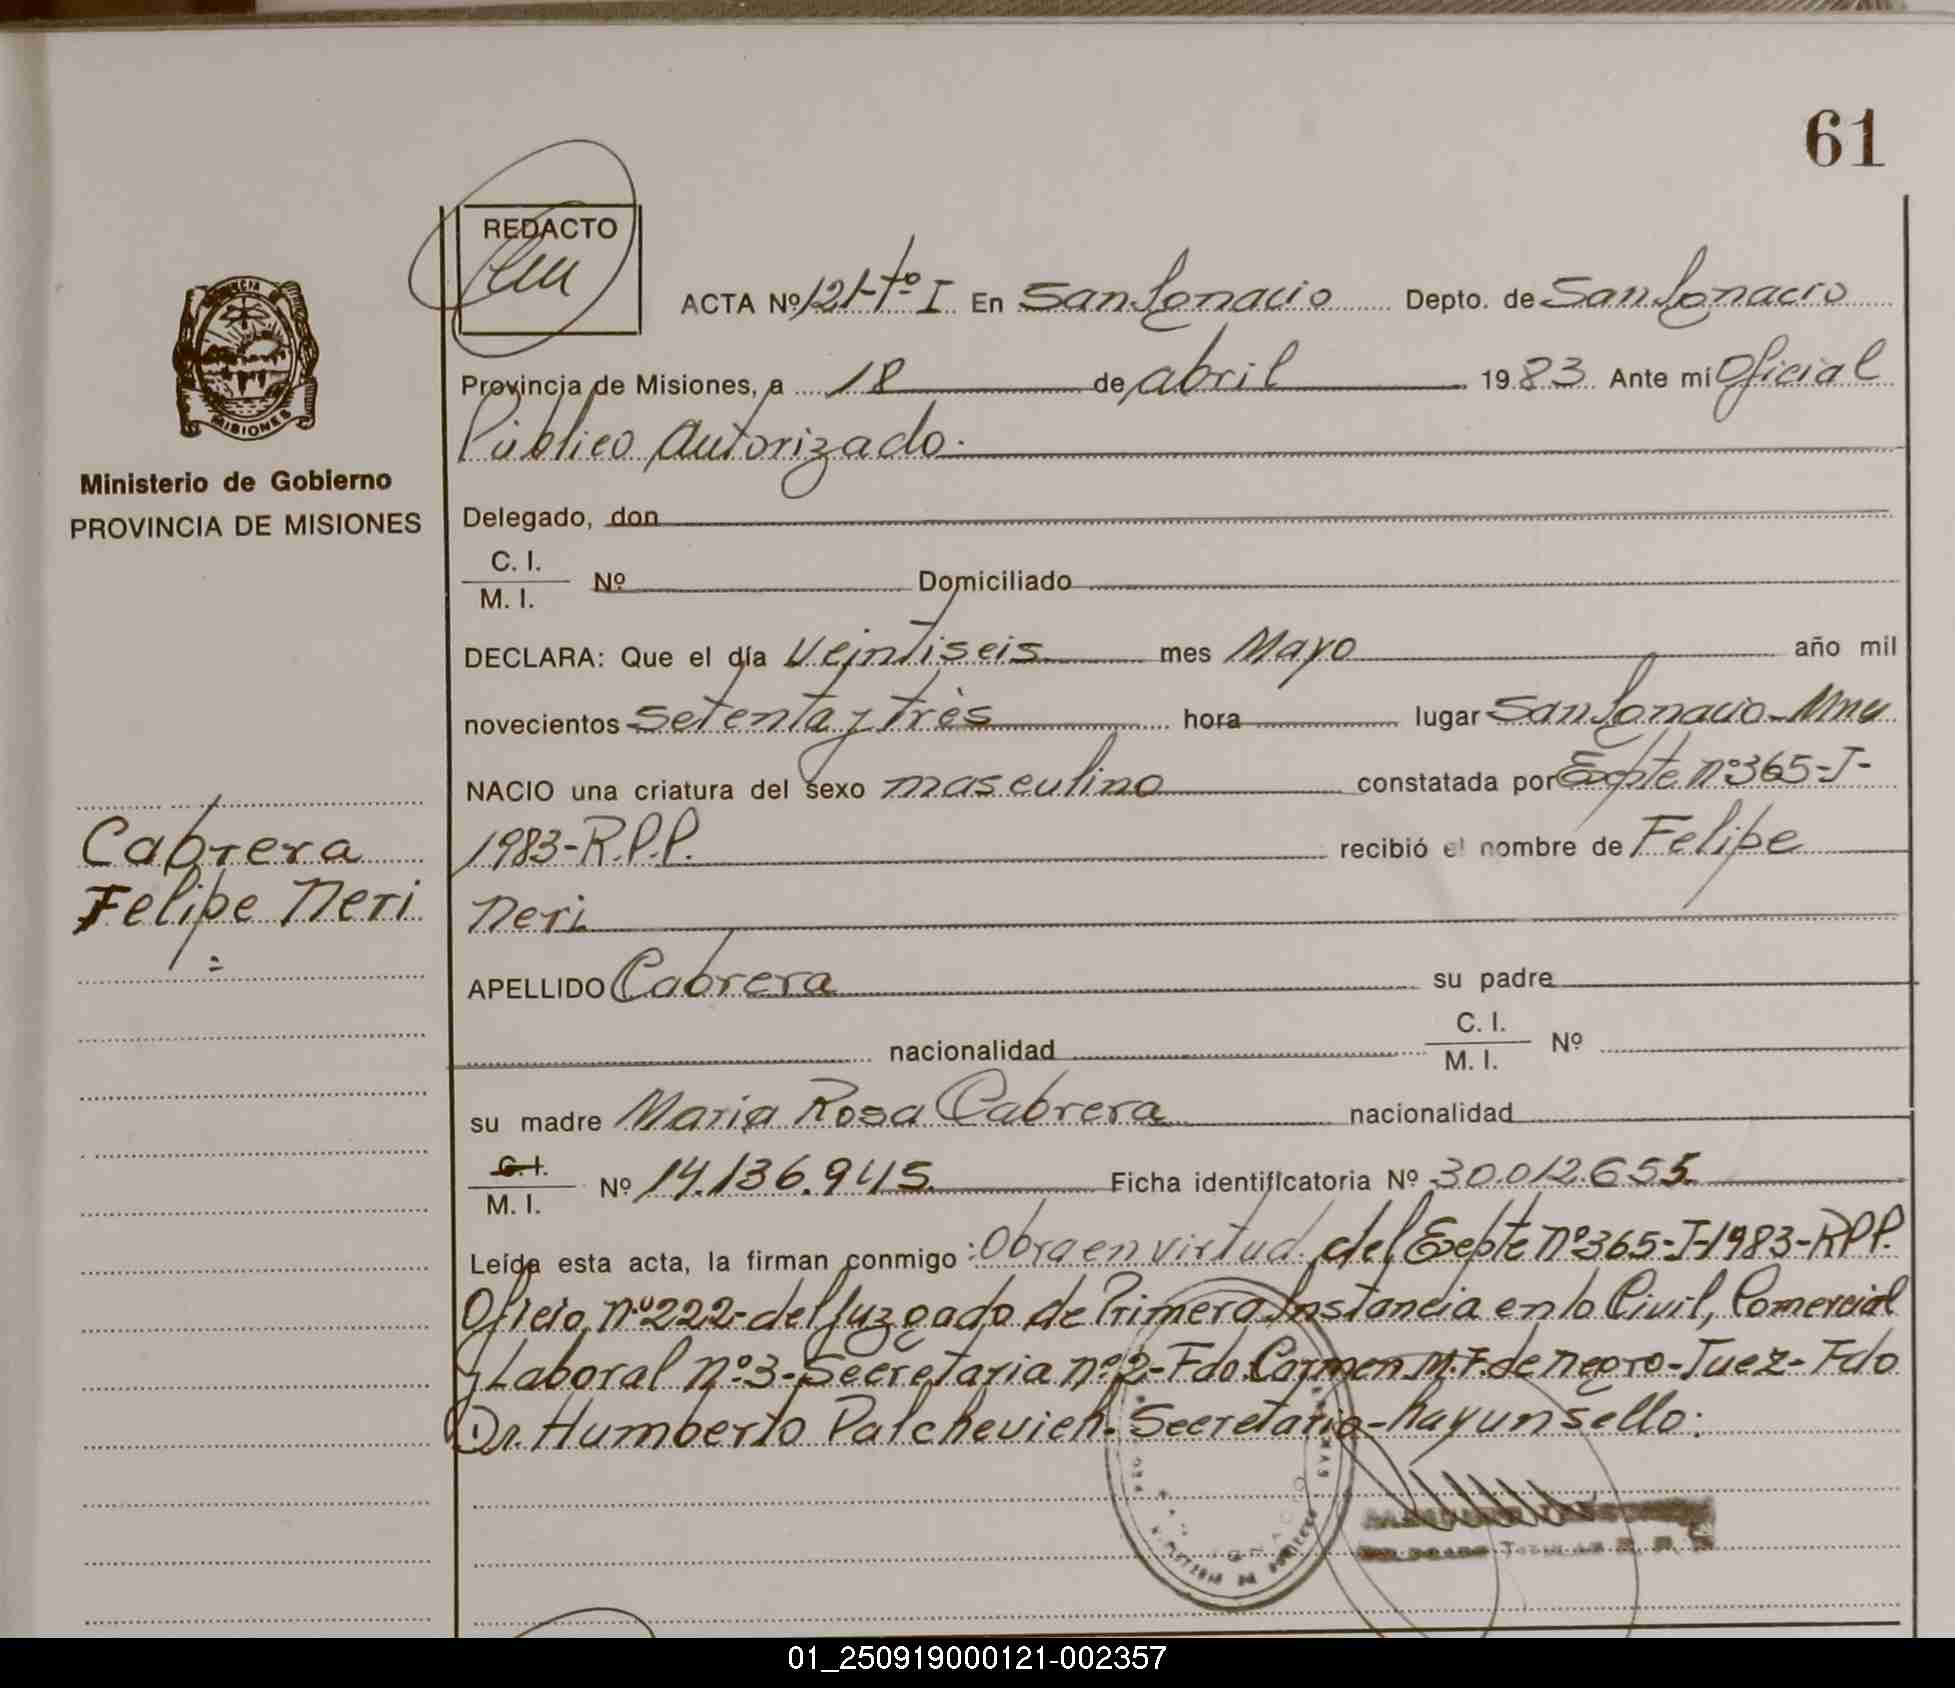 61
REDACTO
ACTA Nº 121-tº I En San Ignacio Depto. de San Ignacio
Provincia de Misiones, a 18 de abril 1983 Ante mi Oficial
Público Autorizado.
MISIONES
Ministerio de Gobierno
PROVINCIA DE MISIONES
Delegado, don
C. I.
Nº Domiciliado
M. I.
DECLARA: Que el día Veintiseis mes Mayo año mil
novecientos setenta y très hora lugar San Ignacio-Mnes
NACIO una criatura del sexo masculino constatada por Expte nº365-J-
1983-R.P.P. recibió el nombre de Felipe
Neri
Cabrera
Felipe Neri
APELLIDO Cabrera su padre
nacionalidad C. I. Nº
M. I.
su madre Maria Rosa Cabrera nacionalidad
C. I.
Nº 14.136.945. Ficha identificatoria Nº 30.012.655.
M. I.
Leída esta acta, la firman conmigo: Obra en virtud del Expte nº365-J-1983-RPP.
Oficio nº222-del Juzgado de Primera Instancia en lo Civil, Comercial
y Laboral nº3-Secretaria nº2-Fdo. Carmen M.F. de Negro-Juez-Fdo
Dr. Humberto Patchevich. Secretario-hay un sello:
01_250919000121-002357